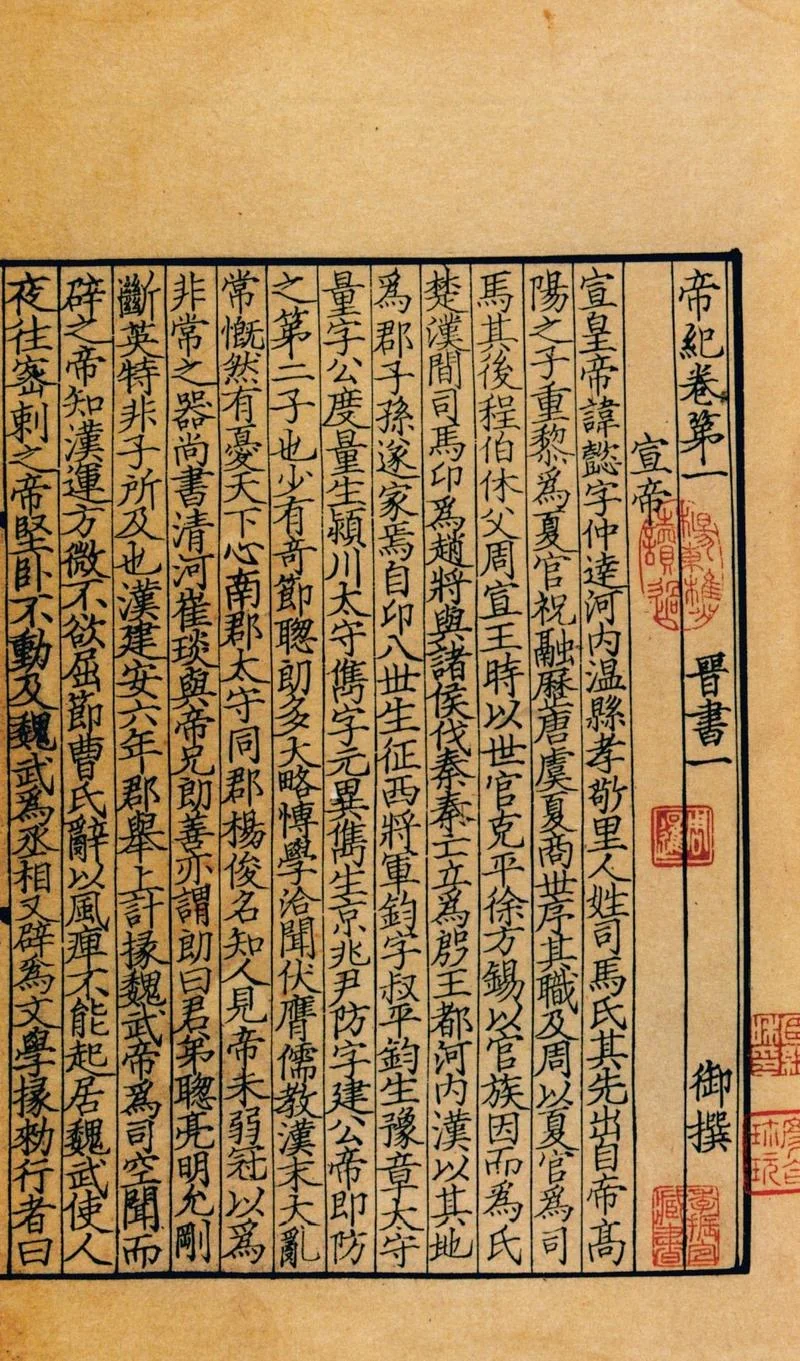 帝紀卷第一 晉書一 御撰
宣帝
宣皇帝諱懿字仲達河内温縣孝敬里人姓司馬氏其先出自帝髙
陽之子重黎爲夏官祝融歷唐虞夏商世序其職及周以夏官爲司
馬其後程伯休父周宣王時以世官克平徐方錫以官族因而爲氏
楚漢間司馬卬爲趙將與諸侯伐秦秦亡立爲殷王都河内漢以其地
爲郡子孫遂家焉自卬八世生征西將軍鈞字叔平鈞生豫章太守
量字公度量生潁川太守儁字元異儁生京兆尹防字建公帝即防
之第二子也少有奇節聦朗多大略博學洽聞伏膺儒教漢末大亂
常慨然有憂天下心南郡太守同郡楊俊名知人見帝未弱冠以爲
非常之器尚書清河崔琰與帝兄朗善亦謂朗曰君弟聦亮明允剛
斷英特非子所及也漢建安六年郡舉上計掾魏武帝爲司空聞而
辟之帝知漢運方微不欲屈節曹氏辭以風痺不能起居魏武使人
夜往宻刺之帝堅卧不動及魏武爲丞相又辟爲文學掾勑行者曰